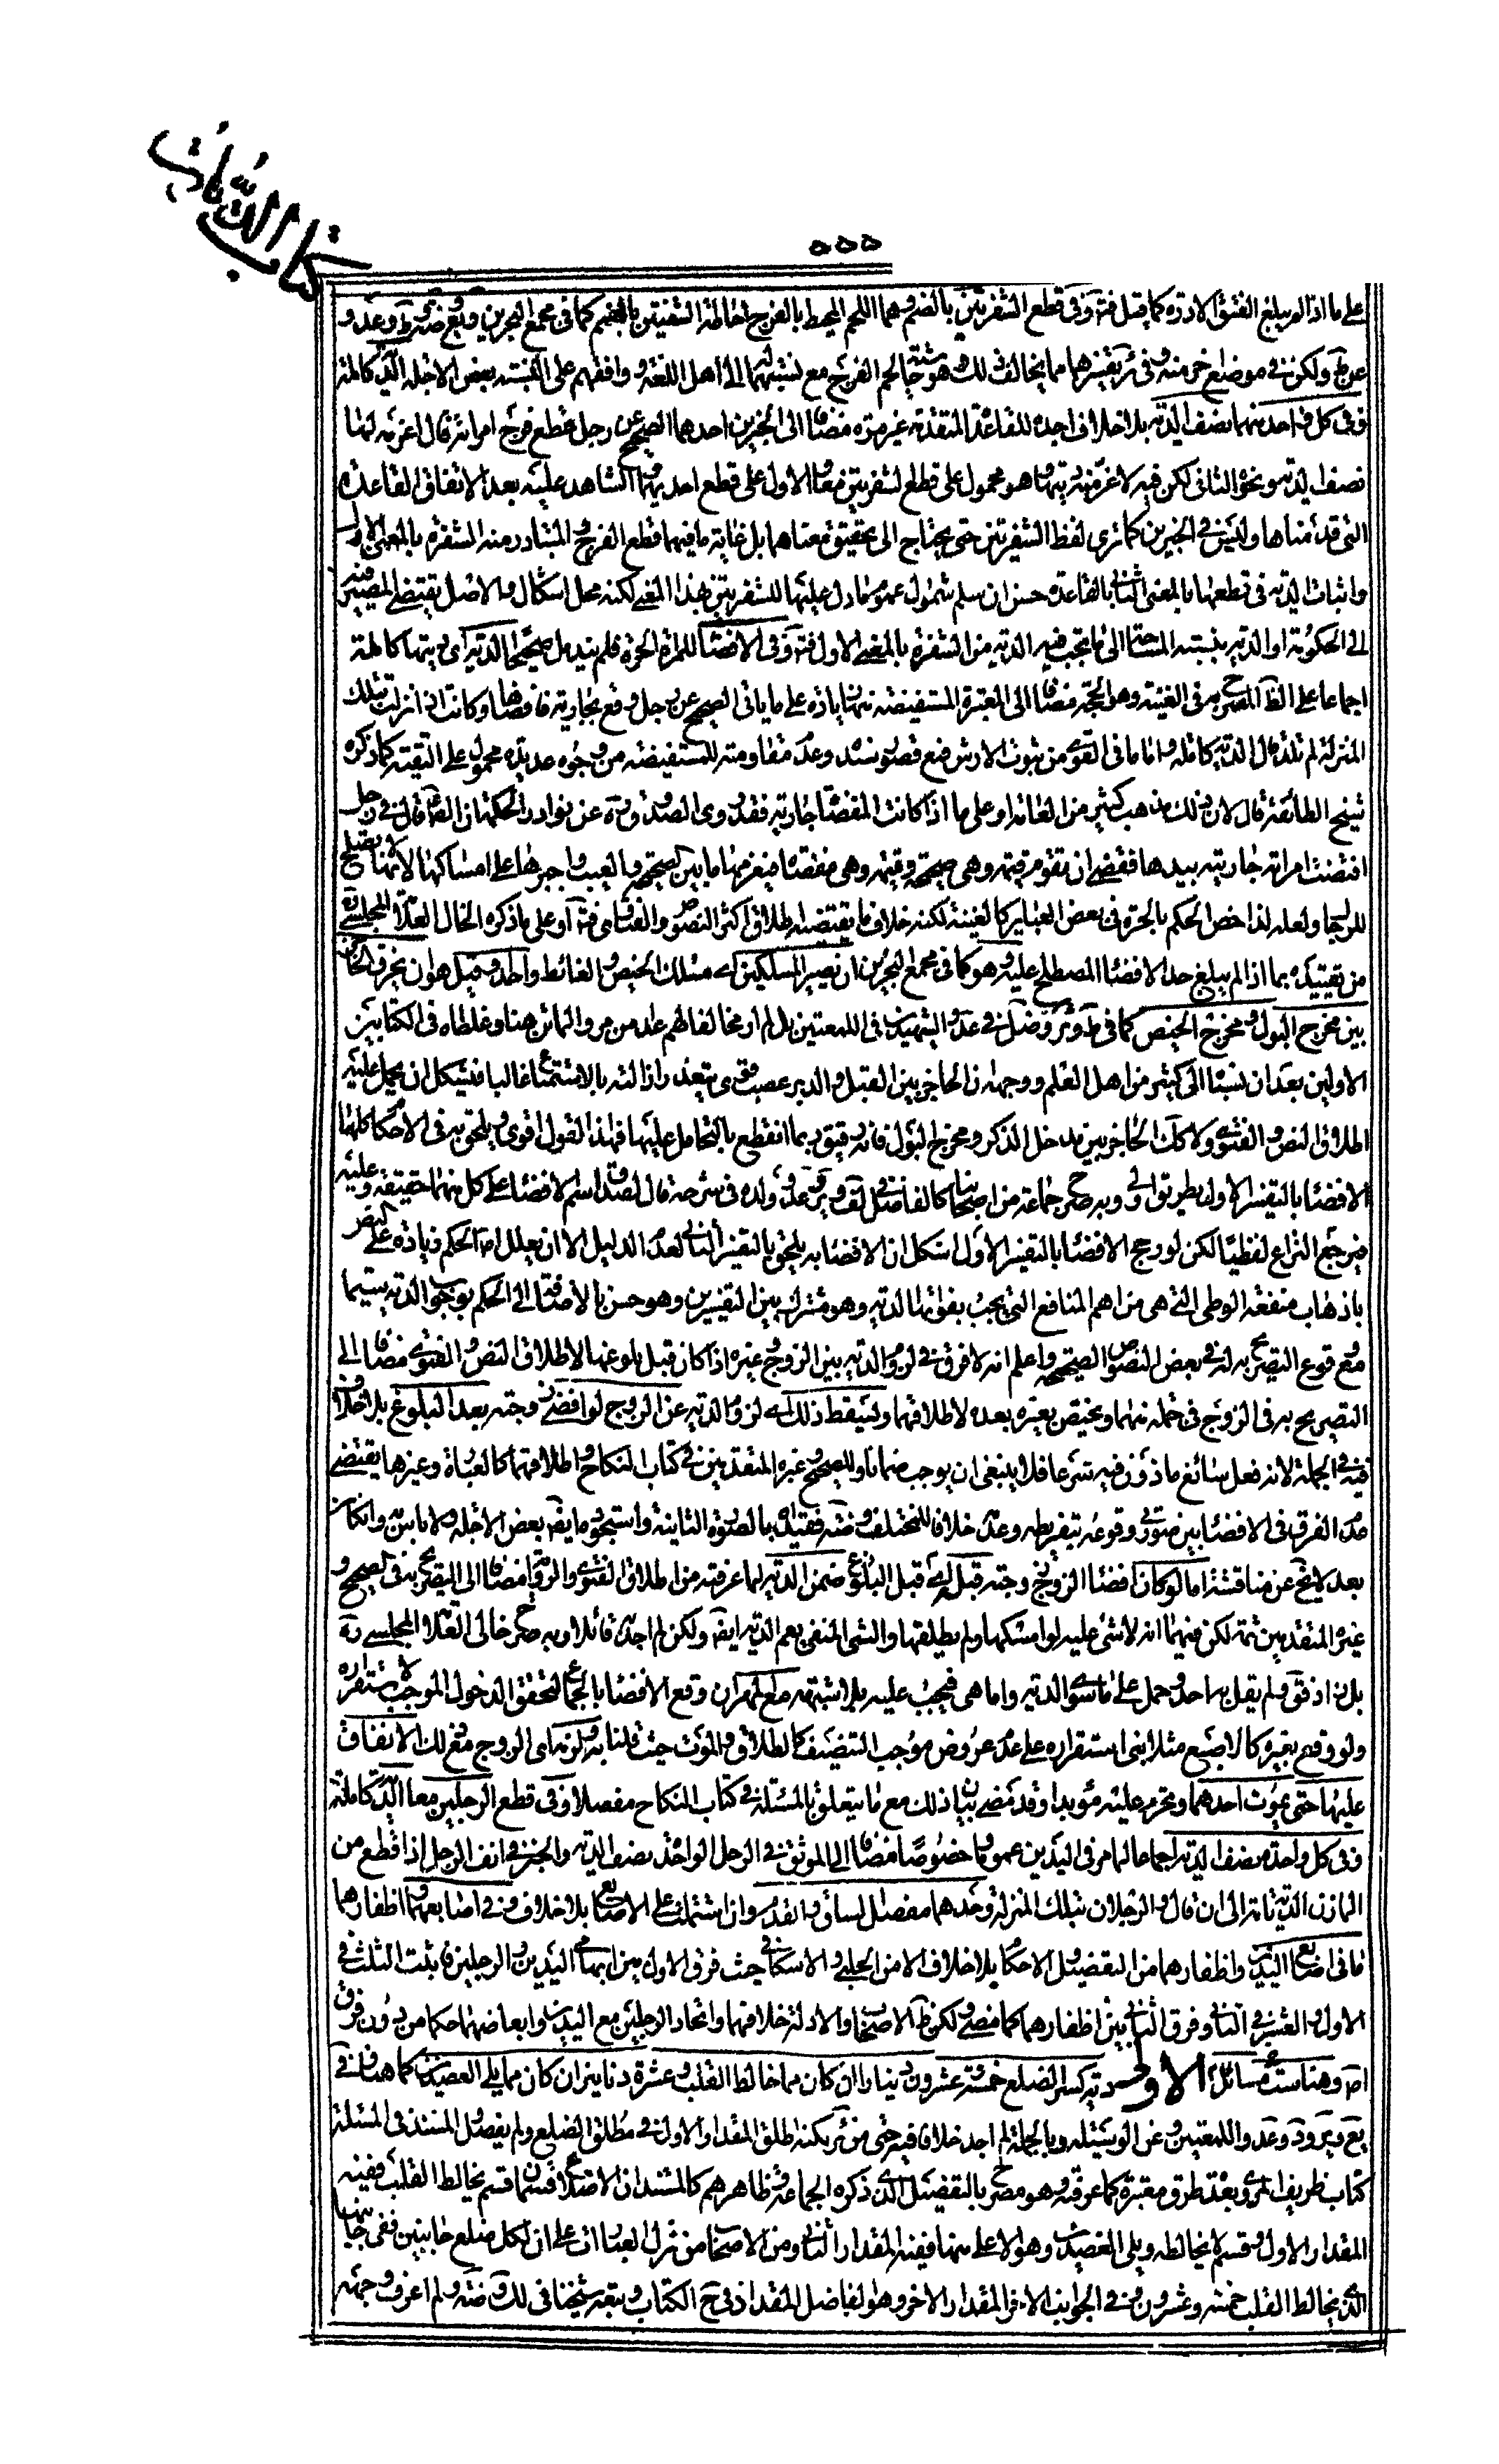 كتاب الديات
٥٥٥
على ما اذا لم يبلغ الفتق الادرة كما قيل فتد وفى قطع الشفرتين بالضم وهما اللحم المحيط بالفرج احاطة الشفتين بالفم كما فى مجمع البحرين
ولكن فى موضع اخر منه وفى تفسيرهما بما يخالف ذلك وهو حاشيتا لحم الفرج مع نسبتهما الى اهل اللغة ووافقهم على النسبة بعض الاجلة الدية كاملة
وفى كل واحدة منهما نصف الدية بلا خلاف اجده للقاعدة المتقدمة غير مرة مضافا الى الخبرين احدهما الصحيح عن رجل قطع فرج امرأته قال اغرمه لها
نصف الدية ونحوه الثانى لكن فيه لاغرمنه ديتها وهو محمول على قطع الشفرتين معا والاول على قطع احديهما الشاهد عليه بعد الاتفاق القاعدة
التى قدمناها وليس فى الخبرين كما ترى لفظ الشفرتين حتى يحتاج الى تحقيق معناهما بل غاية ما فيهما قطع الفرج والمتبادر منه الشفرة بالمعنى الاول
واثبات الدية فى قطعها بالمعنى الثانى بالقاعدة حسن ان سلم شمول عموم ما دل عليها للشفرتين بهذا المعنى لكنه محل اشكال والاصل يقتضى المصير فيه
الى الحكومة او الدية بنسبة المساحة الى ما يجب فيه الدية من الشفرة بالمعنى الاول فتد وفى الافضاء للمرأة الحرة فلم يندمل صحيحا الدية اى ديتها كاملة
اجماعا على الظ المصرح به فى الغنية وهو الحجة مضافا الى المعتبرة المستفيضة زيادة على ما ياتى الصحيح عن رجل وقع بجارية فافضاها وكانت اذا نزلت بتلك
المنزلة لم تلد قال الدية كاملة واما ما فى القوى من ثبوت الارش فمع قصور سنده وعدم مقاومته للمستفيضة من وجوه عديدة محمول على التقية كما ذكره
شيخ الطائفة قال لان ذلك مذهب كثير من العامة او على ما اذا كانت المفضاة جارية فقد روى الصدوق ره عن نوادر الحكمة ان الصادق ع قال فى رجل
افتضت امرأته جاريته بيدها فقضى ان تقوم قيمة وهى صحيحة وقيمة وهى مفضاة فيغرمها ما بين الصحة والعيب واجبرها على امساكها لانها لا تصلح
للرجال ولعله لذا خص الحكم بالحرة فى بعض العبائر كالغنية لكنه خلاف ما يقتضيه اطلاق اكثر النصوص والفتاوى فتد او على ما ذكره الخال العلامة المجلسى ره
من تقييده بما اذا لم يبلغ حد الافضاء المصطلح عليه وهو كما فى مجمع البحرين ان تصير المسلكين اى مسلك الحيض والغائط واحدا وقيل هو ان يخرق الحاجز
بين مخرج البول ومخرج الحيض كما فى ط
الاولين بعد ان نسبا الى كثير من اهل العلم ووجهاه بان الحاجز بين القبل والدبر عصب قوى يتعذر ازالته بالاستمتاع غالبا فيشكل ان يحمل عليه
اطلاق النص والفتوى ولا كك الحاجز بين مدخل الذكر ومخرج البول فانه رقيق ربما انقطع بالتحامل عليها فهذا القول اقوى ويلحق به فى الاحكام كلها
الافضاء بالتفسير الاول بطريق اولى وبه صرح جماعة من اصحابنا كالفاضل فى القواعد وولده فى شرحه قال لصدق اسم الافضاء على كل منهما حقيقة وعليه
فيرجع النزاع لفظيا لكن لو رجح الافضاء بالتفسير الاول اشكل ان الافضاء به يلحق بالتفسير الثانى لعدم الدليل الا ان يعلل اصل الحكم زيادة على النص
باذهاب منفعة الوطى التى هى من اهم المنافع التى يجب بفواتها الدية وهو مشترك بين التفسيرين وهو حسن بالاضافة الى الحكم بوجوب الدية سيما
مع وقوع التصريح به له فى بعض النصوص الصحيحة واعلم انه لا فرق فى لزوم الدية بين الزوج وغيره اذا كان قبل بلوغها لاطلاق النص والفتوى مضافا الى
التصريح به فى الزوج فى جملة منهما ويختص بغيره بعده لاطلاقهما ويسقط ذلك اى لزوم الدية عن الزوج لو افضى زوجته بعد البلوغ بلا خلاف
فيه فى الجملة لانه فعل سائغ ماذون فيه شرعا فلا ينبغى ان يوجب ضمانا وللصحيح وغيره المتقدمين فى كتاب النكاح واطلاقهما كالعبارة وغيرها يقتضى
عدم الفرق فى الافضاء بين صورتى وقوعه بتفريطه وعدمه خلافا للمختلف وضه فقيداه بالصورة الثانية واستجوده ايضا بعض الاجلة ولا باس به وان كان
بعد لا يخ عن مناقشة اما لو كان افضاء الزوج زوجته قبله اى قبل البلوغ ضمن الدية لما عرفته من اطلاق الفتوى والرواية مضافا الى التصريح به فى الصحيح و
غيره المتقدمين ثمة لكن فيهما انه لا شئ عليه لو امسكها ولم يطلقها والشئ المنفى يعم الدية ايضا ولكن لم اجد به قائلا وبه صرح خالى العلامة المجلسى ره
بل زاد فق ولم يقل به احد وحمل على ما سوى الدية واما هى فيجب عليه بلا شبهة مع المهر ان وقع الافضاء بالجماع لتحقق الدخول الموجب لاستقراره
ولو وقع بغيره كالاصبع مثلا بنى استقراره على عدم عروض موجب التنصيف كالطلاق والموت حيث قلنا به ولزمه اى الزوج مع ذلك الانفاق
عليها حتى يموت احدهما ويحرم عليه مؤبدا وقد مضى بيان ذلك مع ما يتعلق بالمسئلة فى كتاب النكاح مفصلا وفى قطع الرجلين معا الدية كاملة
وفى كل واحدة نصف الدية اجماعا لما مر فى اليدين عموما وخصوصا مضافا الى الموثق فى الرجل الواحدة نصف الدية والخبر فى انف الرجل اذا قطع من
المارن الدية تامة الى ان قال والرجلان بتلك المنزلة وحدهما مفصل الساق والقدم وان اشتملت على الاصابع بلا خلاف وفى اصابعهما واظفارهما
ما فى اصابع اليدين واظفارهما من التفصيل والاحكام بلا خلاف الا من الحلبى والاسكافى حيث فرق الاول بين ابهامى اليدين والرجلين فاثبت الثلث فى
الاول والعشر فى الثانى وفرق الثانى بين اظفارهما كما مضى ولكن ظ الاصحاب والادلة خلافهما واتحاد الرجلين مع اليدين وابعاضهما حكما من دون فرق
اصلا وهنا ست مسائل الاولى دية كسر الضلع خمسة وعشرون دينارا ان كان مما خالط القلب وعشرة دنانير ان كان مما يلى العضدين كما هنا وفى
يع وير ود وعد واللمعتين وعن الوسيلة وبالجملة لم اجد خلافا فيه حتى من ئر لكنه اطلق المقدار الاول فى مطلق الضلع ولم يفصل والمستند فى المسئلة
كتاب ظريف المروى بعدة طرق معتبرة كما عرفته وهو مصرح بالتفصيل الذى ذكره الجماعة وظاهرهم كالمستند ان الاضلاع قسمان قسم يخالط القلب ففيه
المقدار الاول وقسم لا يخالطه ويلى العضدين وهو الاعلى منها ففيه المقدار الثانى ومن الاصحاب من نزل العبارات على ان لكل ضلع جانبين ففى جانبها
الذى يخالط القلب خمسة وعشرون وفى الجوانب الاخر المقدار الاخر وهو الفاضل المقداد فى ح الكتاب وتبعه شيخنا فى لك وضه ولم اعرف وجهه